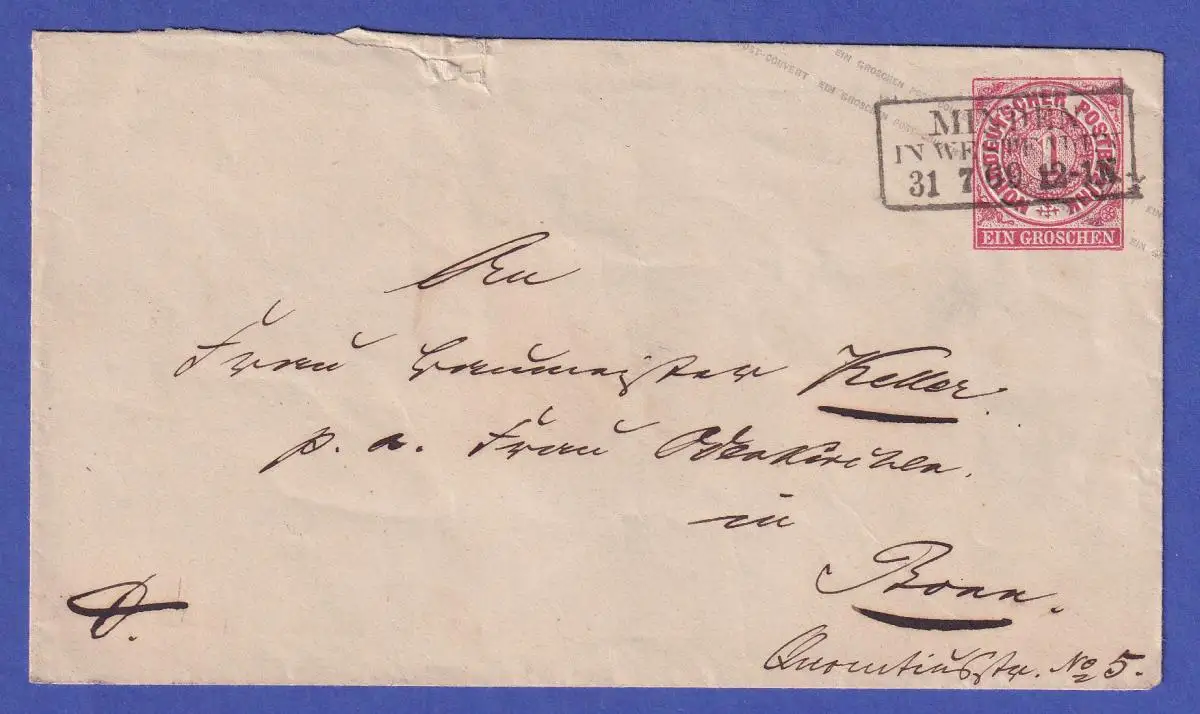 POST-COUVERT EIN GROSCHEN POST-COUVERT
EIN GROSCHEN POST-COUVERT
NORDDEUTSCHER POSTBEZIRK
1
EIN GROSCHEN
MINDEN
IN WESTPHALEN
31 7 69 12-1N
An
Frau Baumeister Keller.
p. a. Frau Odenkirchen.
in
Bonn.
Quantiusstr. No 5.